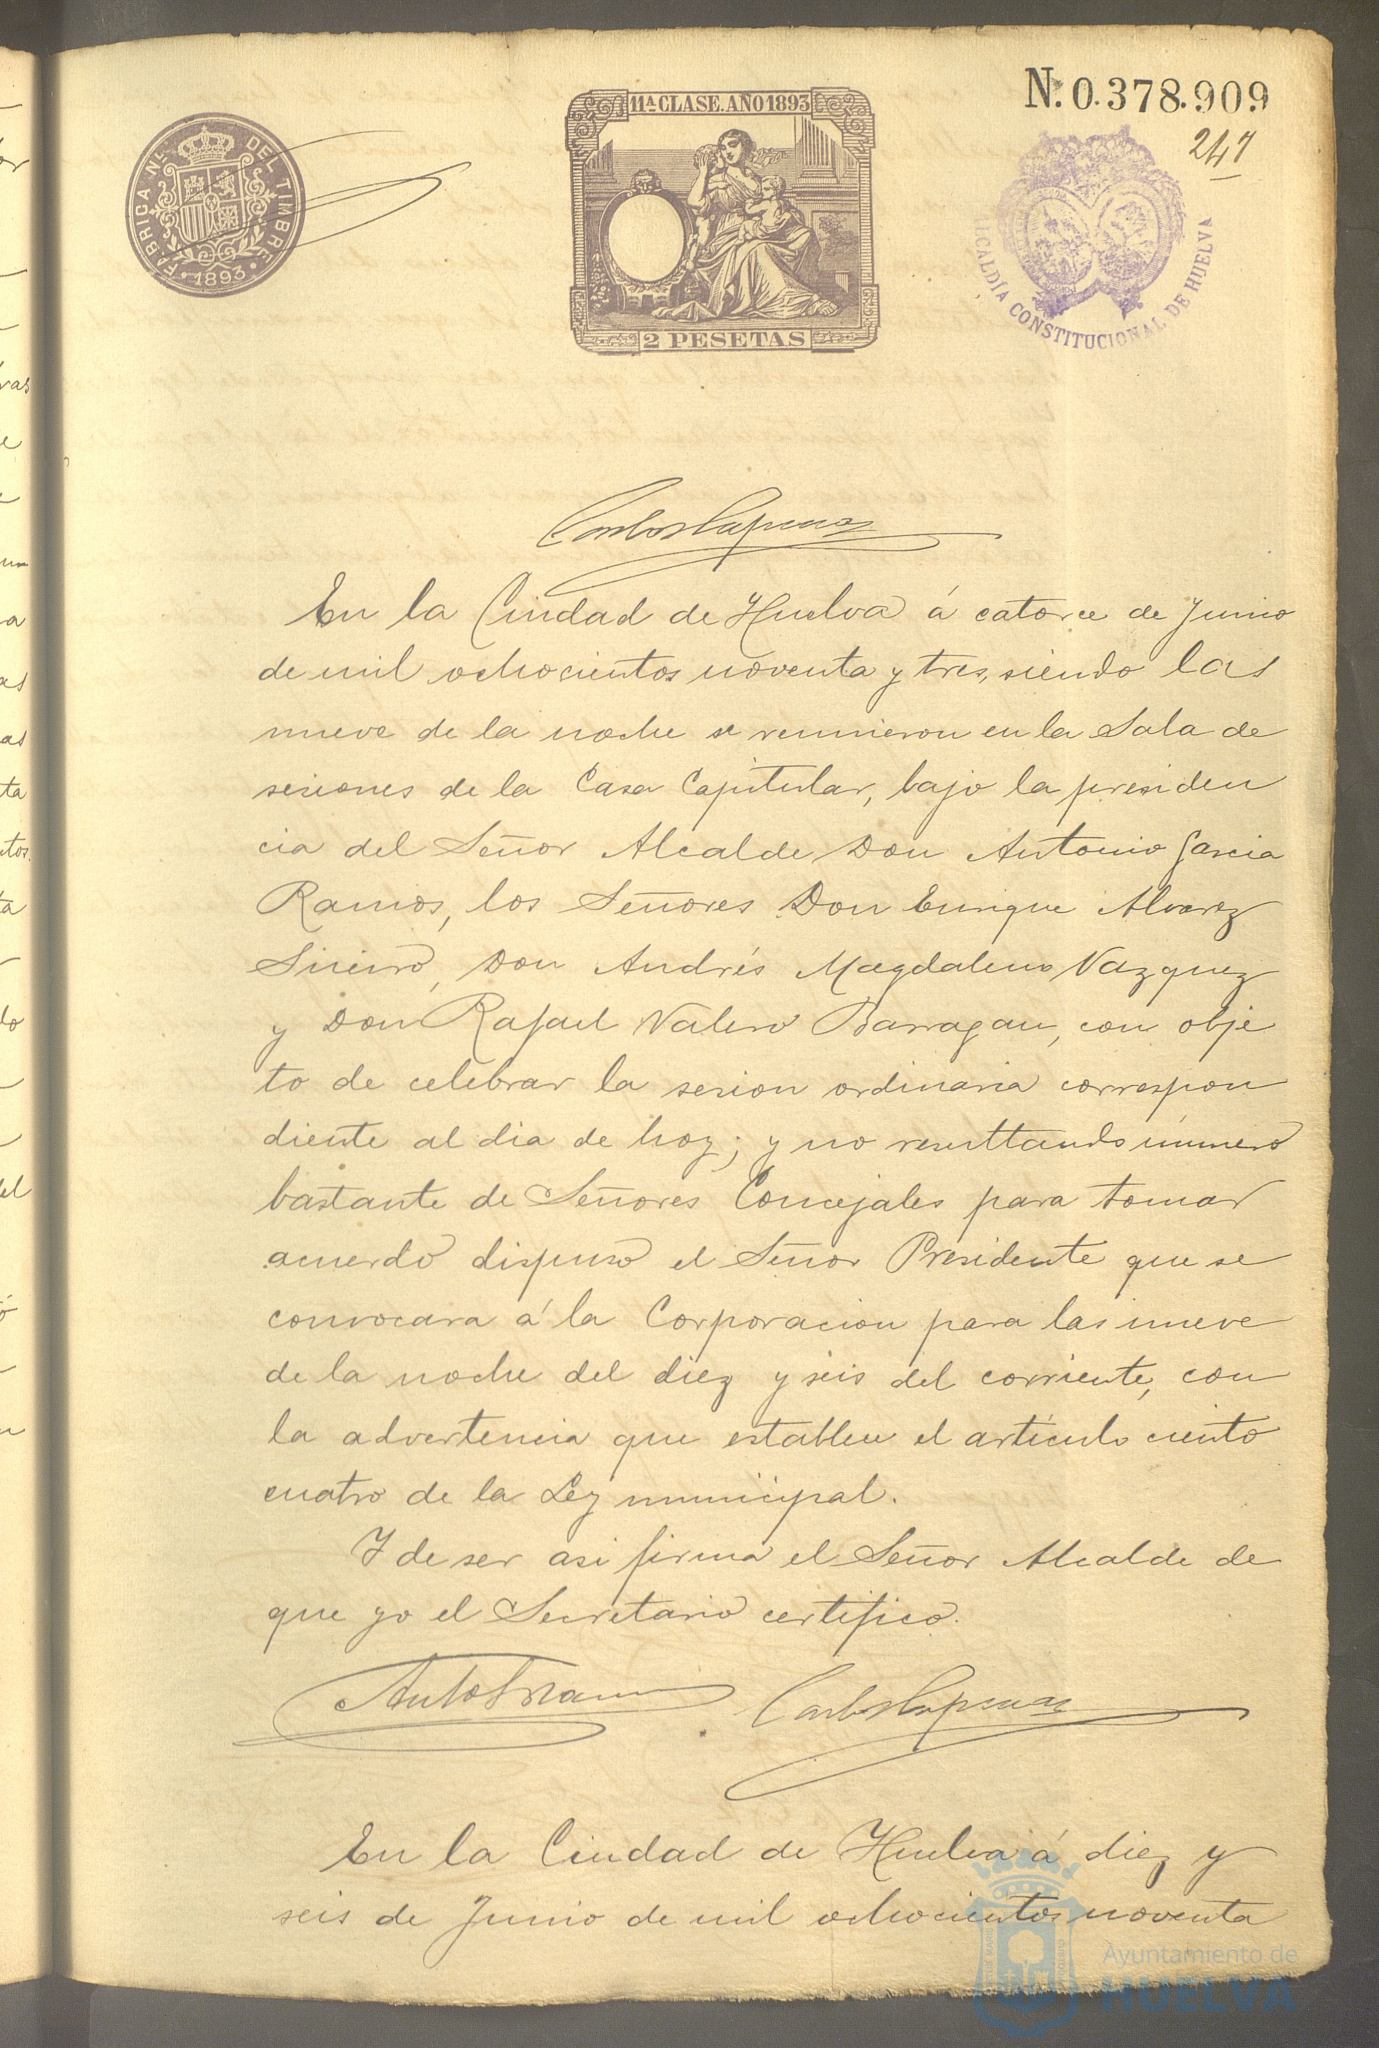 11ª CLASE. AÑO 1893
2 PESETAS
FABRICA NL. DEL TIMBRE
1893
N. 0.378.909
247
ALCALDÍA CONSTITUCIONAL DE HUELVA
En la Ciudad de Huelva á catorce de Junio
de mil ochocientos noventa y tres, siendo las
nueve de la noche se reunieron en la Sala de
sesiones de la Casa Capitular, bajo la presiden
cia del Señor Alcalde Don Antonio Garcia
Ramos, los Señores Don Enrique Alvarez
Sineiro, Don Andrés Magdaleno Vazquez
y Don Rafael Valero Barragan, con obje
to de celebrar la sesion ordinaria correspon
diente al dia de hoy; y no resultando número
bastante de Señores Concejales para tomar
acuerdo dispuso el Señor Presidente que se
convocara á la Corporacion para las nueve
de la noche del diez y seis del corriente, con
la advertencia que establece el artículo ciento
cuatro de la Ley municipal.
Y de ser asi firma el Señor Alcalde de
que yo el Secretario certifico.
En la Ciudad de Huelva á diez y
seis de Junio de mil ochocientos noventa
Ayuntamiento de
HUELVA